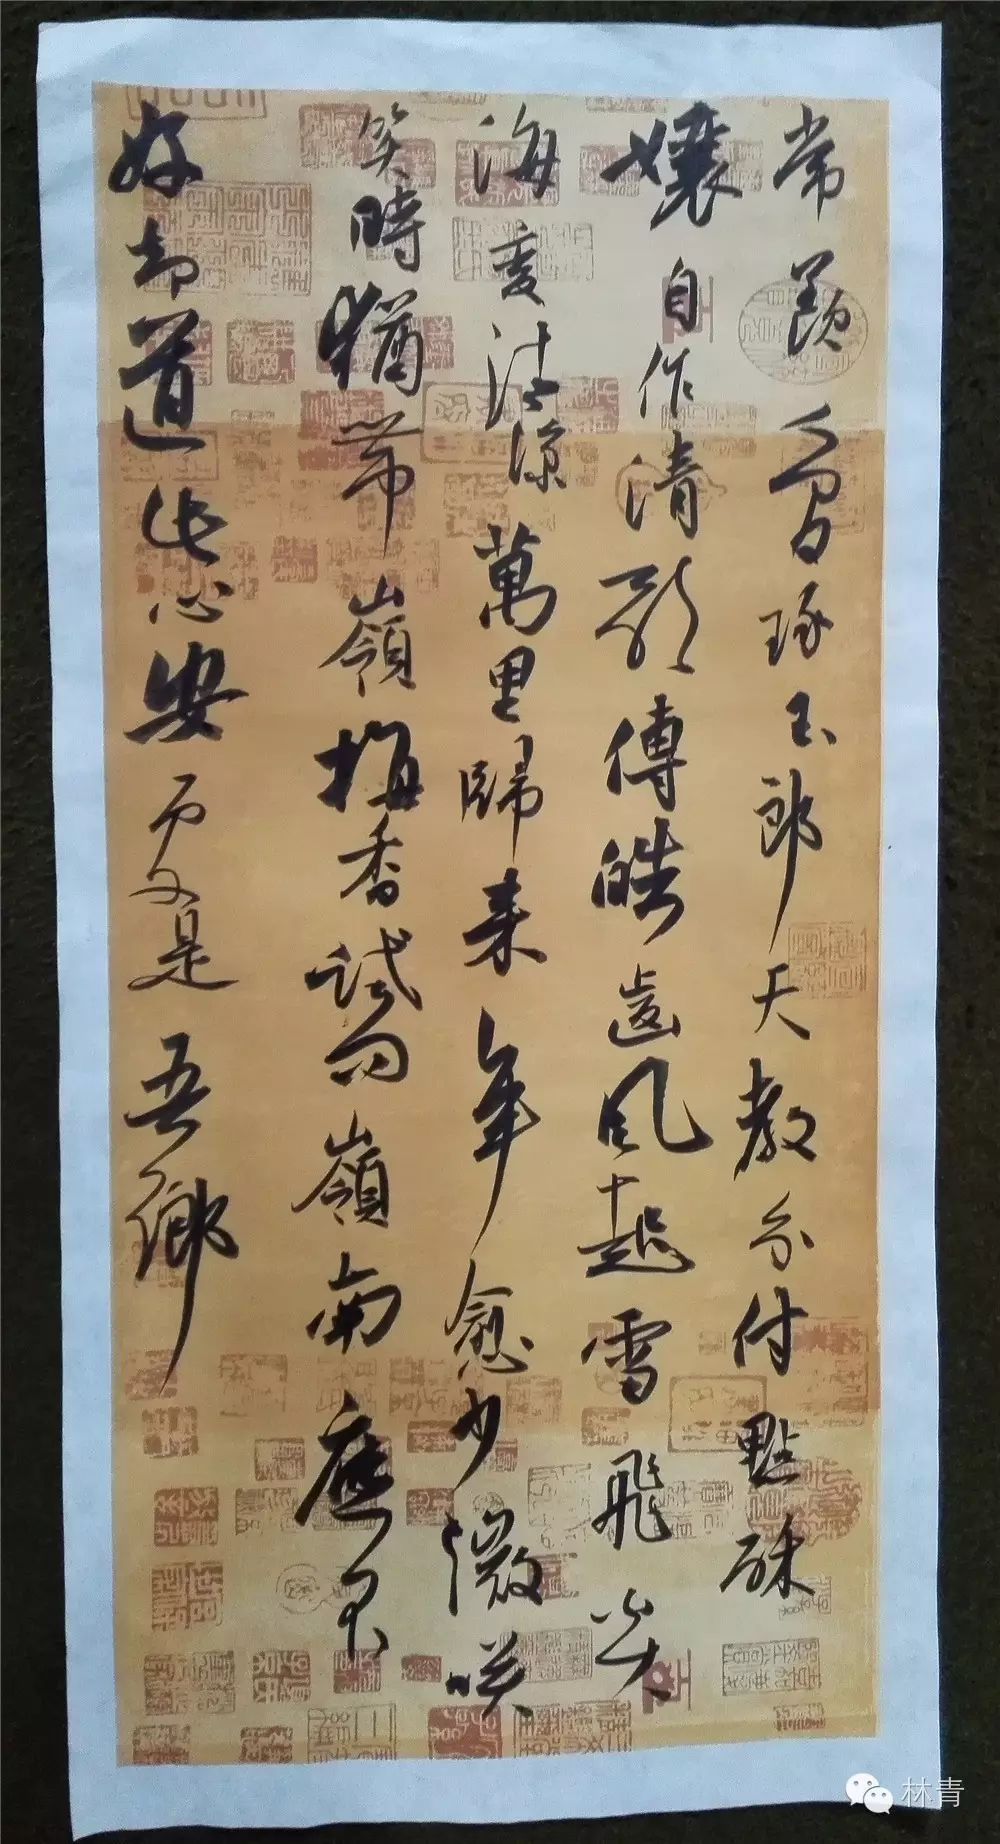 常羨人間琢玉郎天教分付點酥
孃自作清歌傳皓齒風起雪飛炎
海變清涼萬里歸來年愈少微咲
笑時猶帶嶺梅香試問嶺南應不
好却道此心安處是吾鄉
林青